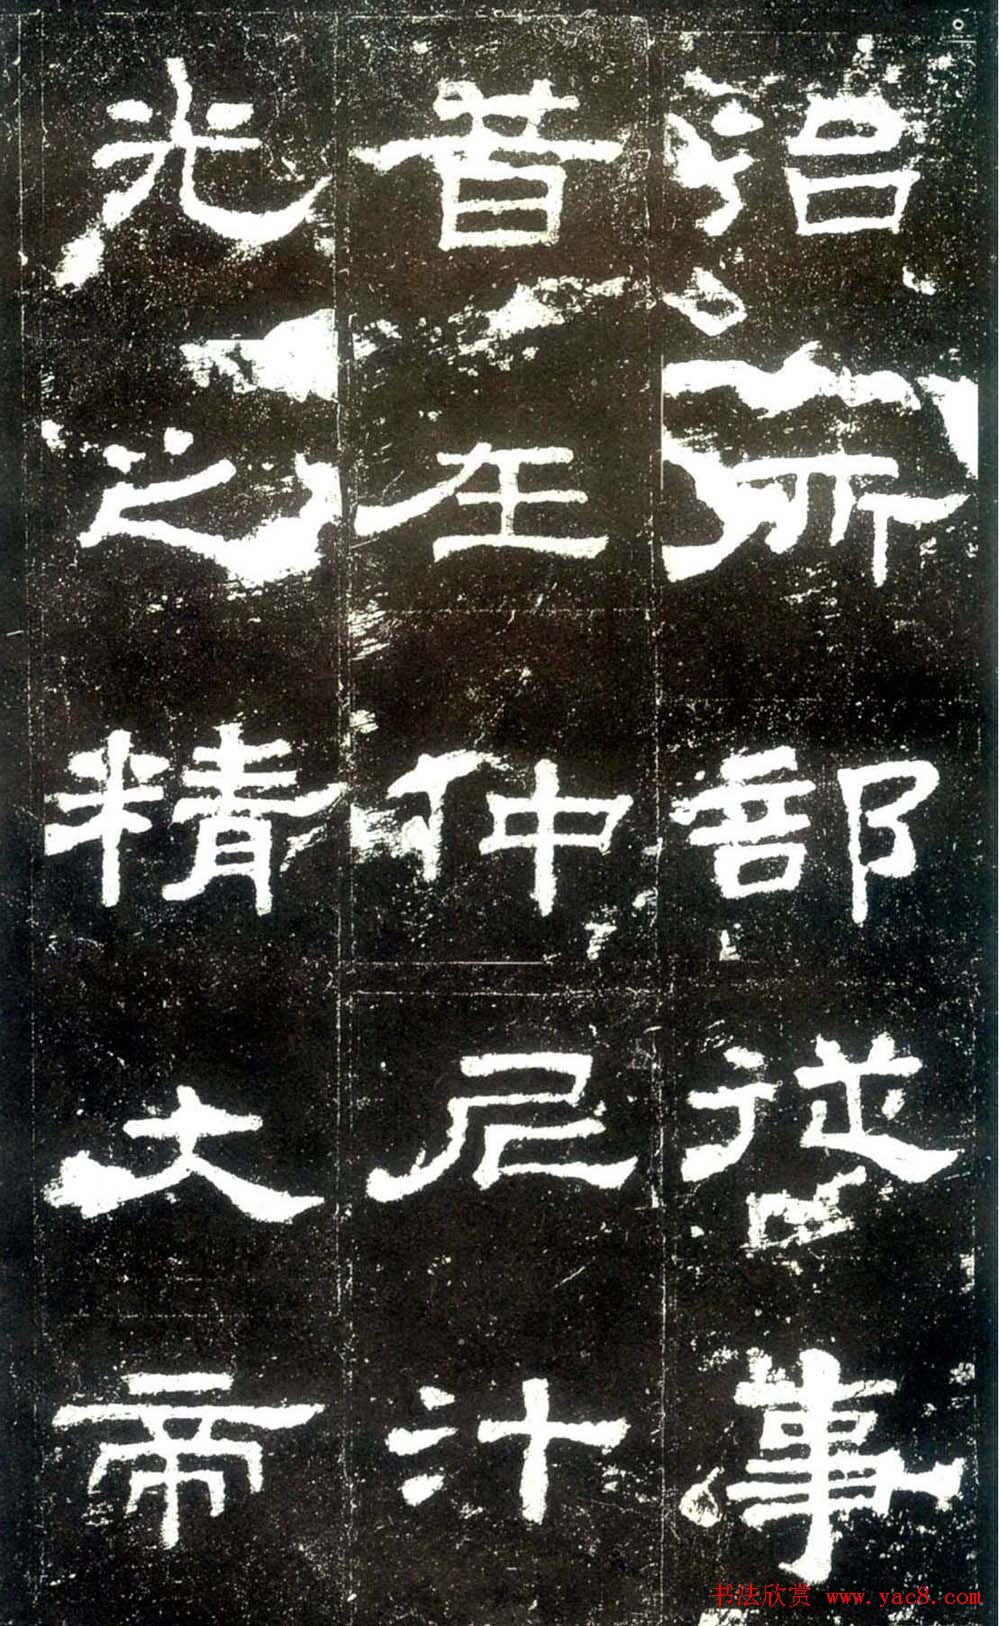 治所部從事
昔在仲尼汁
光之精大帝
书法欣赏 www.yac8.com